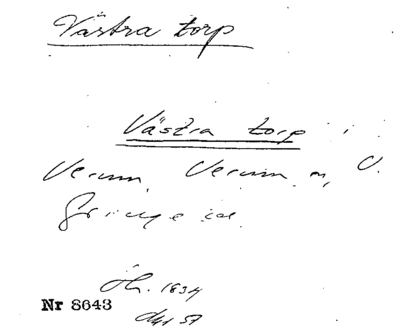 Västra torp
Västra torp i
Verum, Verum sn, V.
Göinge hd.
Jh. 1834
Nr 8643